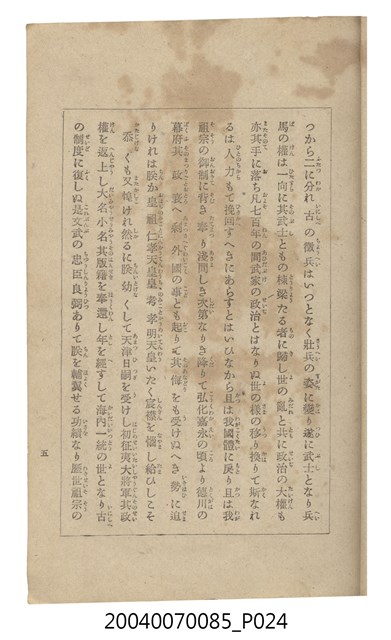 つから二に分れ古の徴兵はいつとなく壯兵の姿に變り遂に武士となり兵
馬の權は一向に其武士ともの棟梁たる者に歸し世の亂と共に政治の大權も
亦其手に落ち凡七百年の間武家の政治とはなりぬ世の樣の移り換りて斯なれ
るは人力もて挽回すへきにあらすとはいひなから且は我國體に戻り且は我
祖宗の御制に背き奉り淺間しき次第なりき降りて弘化嘉永の頃より徳川の
幕府其政衰へ剩外國の事とも起りて其侮をも受けぬへき勢に迫
りけれは朕か皇祖仁孝天皇皇考孝明天皇いたく宸襟を惱し給ひしこそ
忝くも又惶けれ然るに朕幼くして天津日嗣を受けし初征夷大將軍其政
權を返上し大名小名其版籍を奉還し年を經すして海内一統の世となり古
の制度に復しぬ是文武の忠臣良弼ありて朕を輔翼せる功績なり歴世祖宗の
五
20040070085_P024